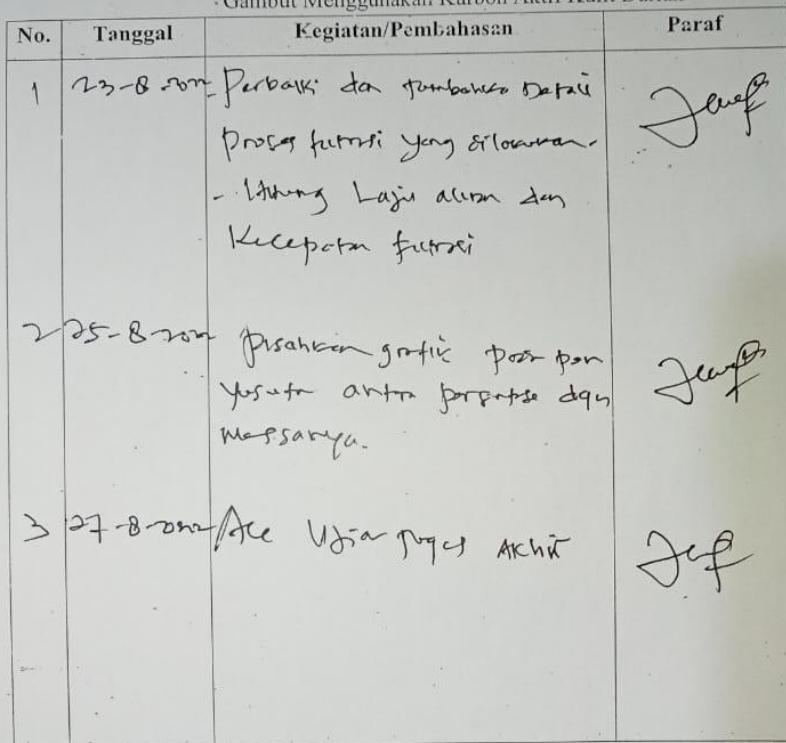 Gambut Menggunakan Karbon Aktif Kulit
No. Tanggal Kegiatan/Pembahasan Paraf
1 23-8-2022 - Perbaiki dan tambahkan Detail
proses filtrasi yang dilakukan.
- Hitung Laju aliran dan
Kecepatan filtrasi
2 25-8-2022 pisahkan grafik
antara persentase dgn
massanya.
3 27-8-2022 Acc Ujian Tugas Akhir